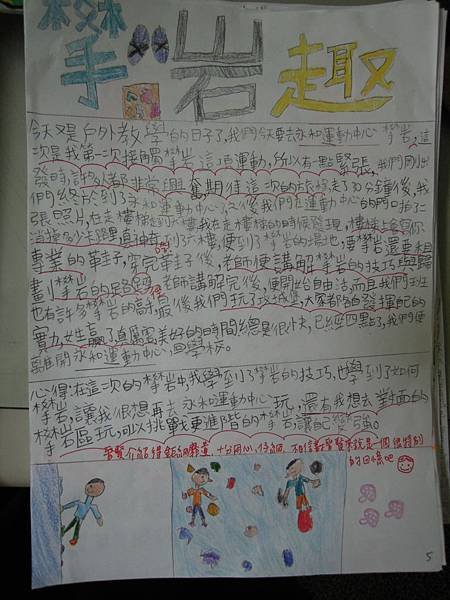 攀岩趣
今天又是戶外教學的日子了,我們今天要去永和運動中心攀岩,這
次是我第二次接觸攀岩這項運動,所以有一點緊張,我們剛出
發時,許多人都非常興奮期待這次的旅行,走了30分鐘後,我
們終於到了永和運動中心了,之後我們在運動中心的門口拍了二
張照片,在走樓梯到六樓,我在走樓梯的時候發現,樓梯上會寫你
消耗多少卡路里,直到到六樓,便到了攀岩的場地,
專業的鞋子,穿完鞋子後,老師便講解攀岩的技巧與歸
劃攀岩的路線,老師講解完後,便開始自由活,而且我們班
也有許多攀岩的高手,最後我們玩了攻城堡,大家都各自發揮自己的
實力,女生贏了真厲害,美好的時間總是很快,已經四點了,我們便
離開永和運動中心,回學校。
心得:在這次的攀岩中,我學到了攀岩的技巧,也學到了如何
攀岩,讓我很想再去永和運動中心玩,還有我想去對面的
攀岩區玩,可以挑戰更進階的攀岩,讓自己變強。
十分用心、仔細,
的回憶吧
5